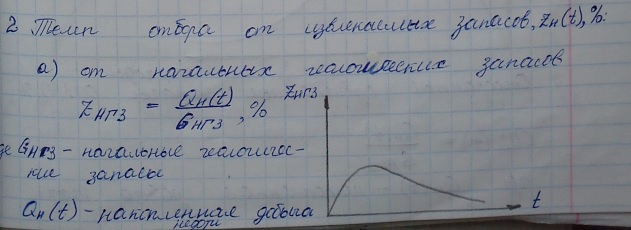 2 Темп отбора от извлекаемых запасов, Zн(t), %:
а) от начальных геологических запасов
Zнгз = Qн(t) / Gнгз, %
Zнгз
где Gнгз - начальные геологичес-
кие запасы
t
Qн(t) - накопленная добыча
нефти